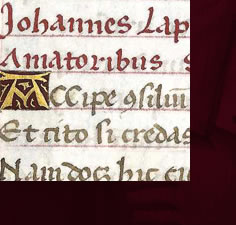 Johannes Lap
Amatoribus S
ACCipe ɔsiliū
Et cito si credas
Nam docꝫ hic